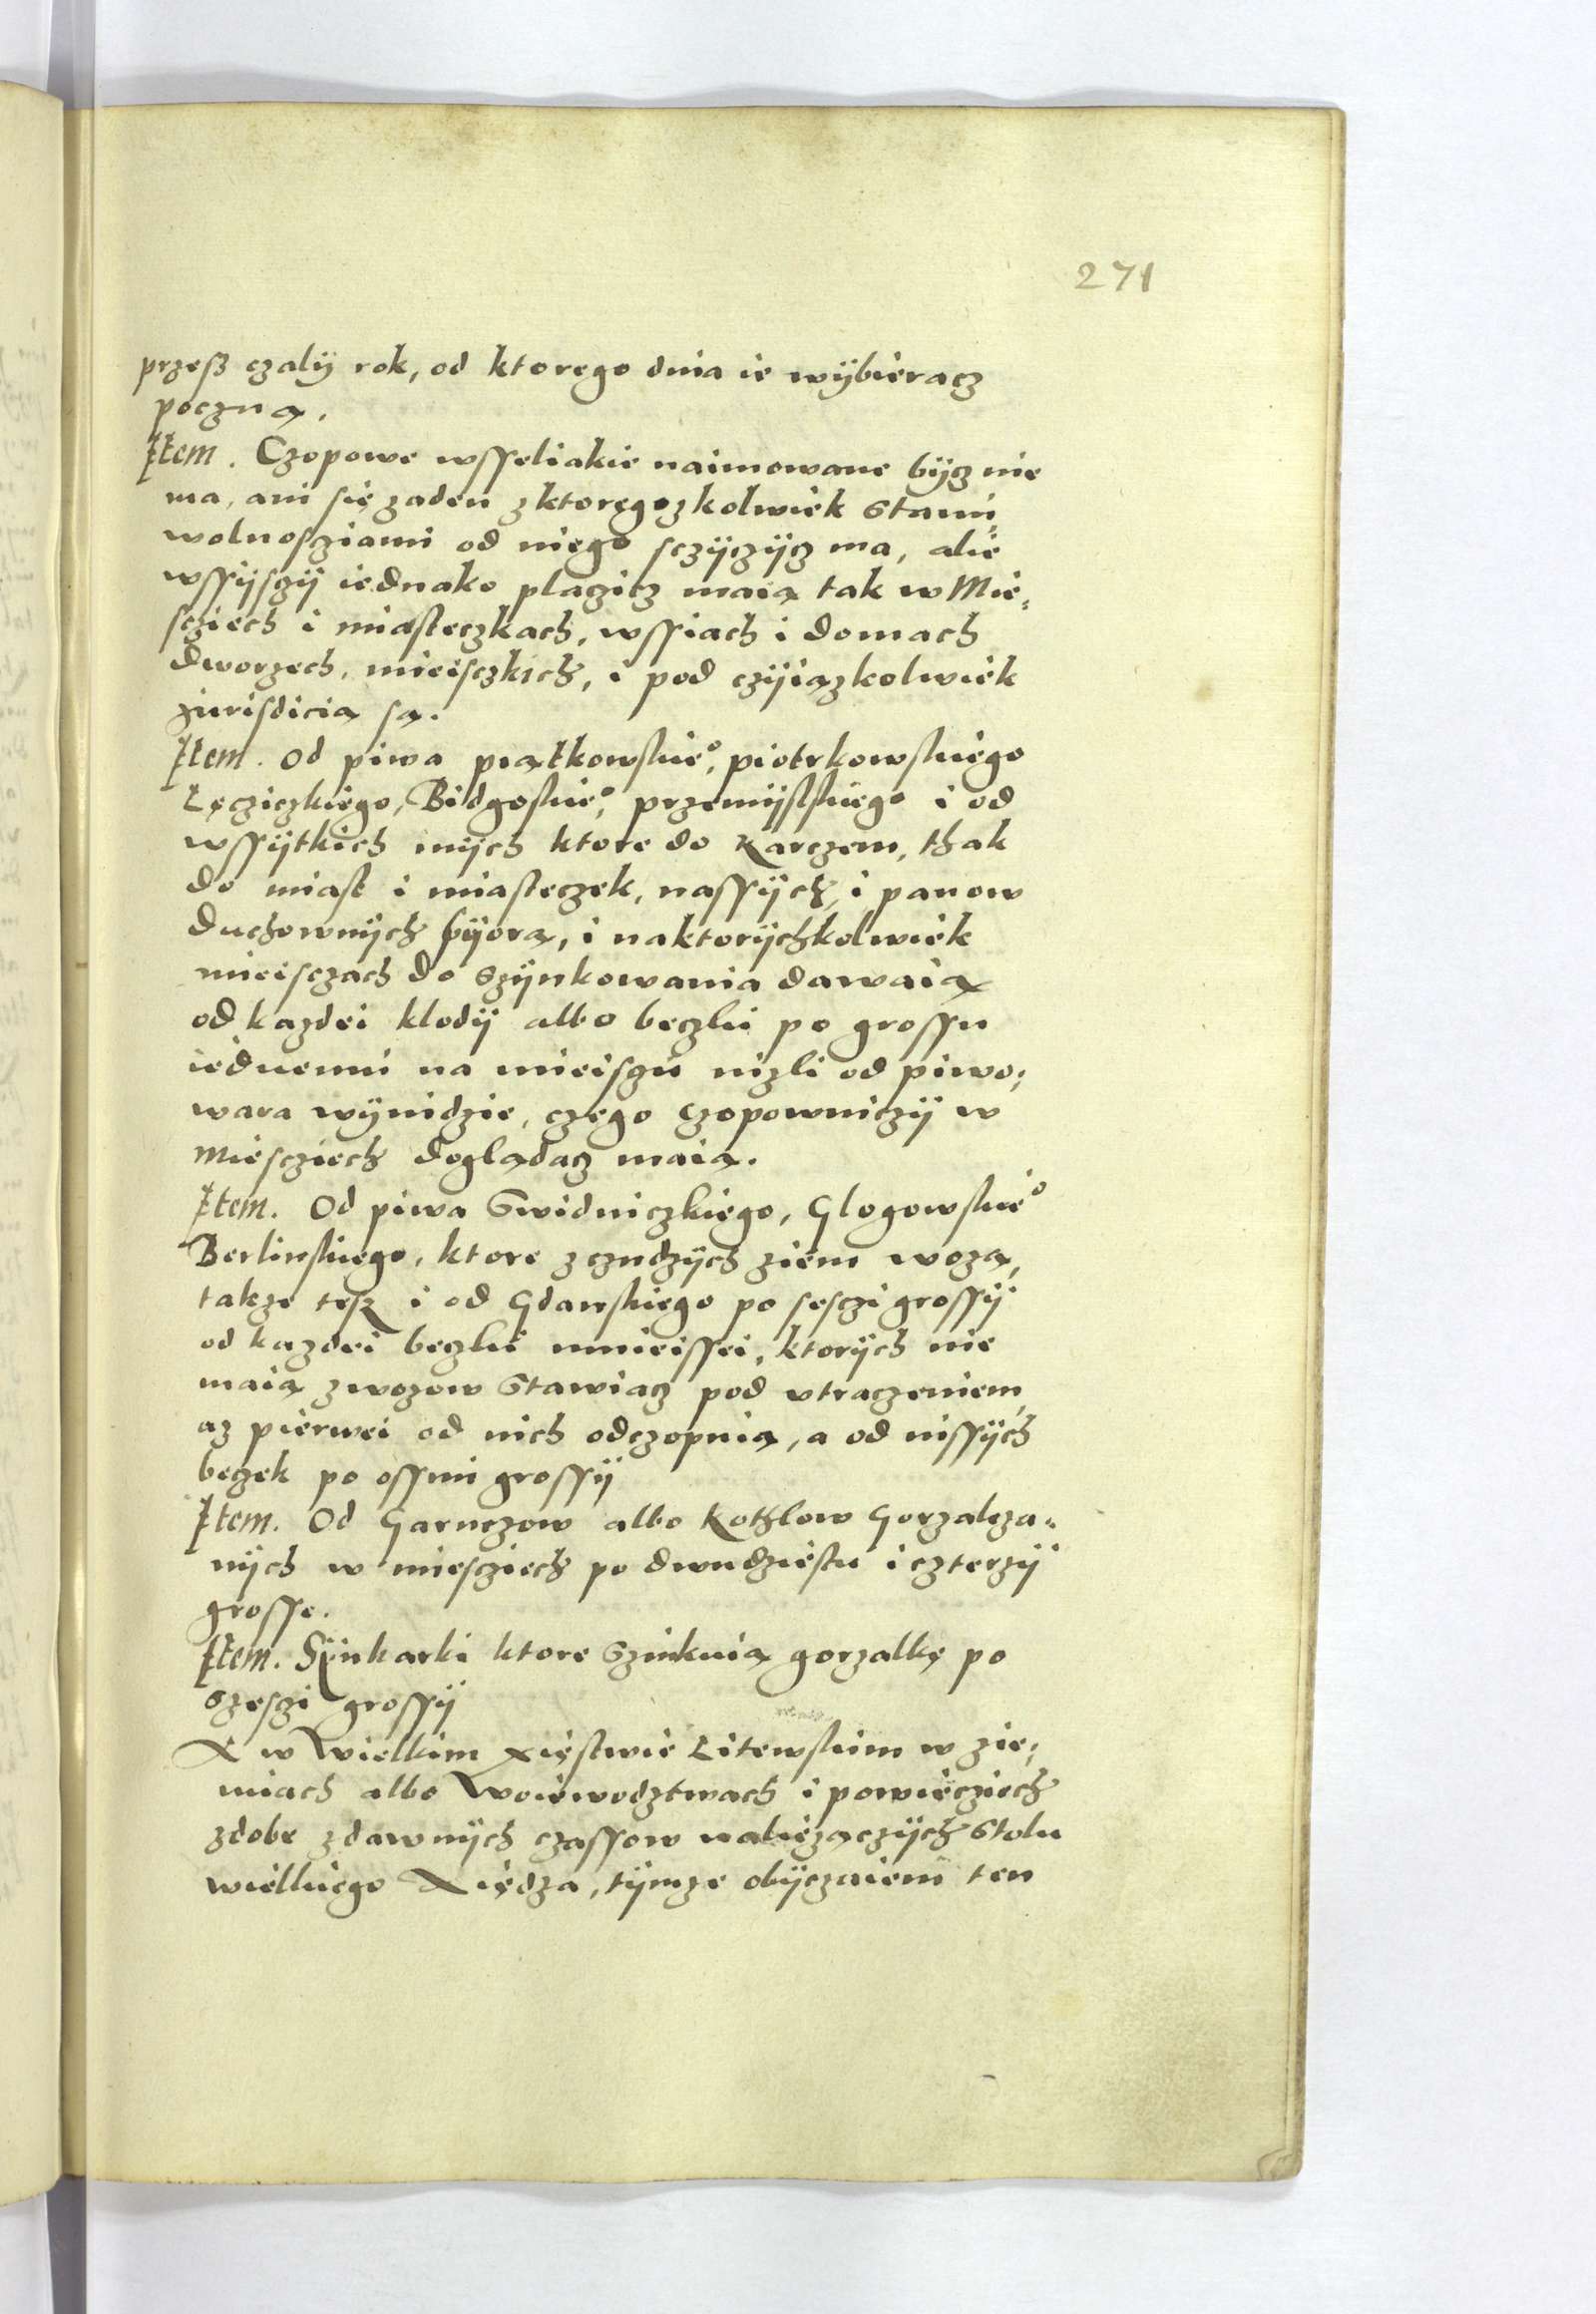 271
przesz czalÿ rok, od ktorego dnia ie wÿbieracz
poczną.
Item. Czopowe wsseliakie naimowane bÿcz nie
ma, ani się zaden z ktoregozkolwiek stanu,
wolnosciami od niego sczÿczÿcz ma, alie
wssÿsczÿ iednako placzicz maią tak w Mie,
scziech i miasteczkach, wssiach i domach
dworzech, mieisczkich, i pod czÿiązkolwiek
Jurisdicią są.
Item. Od piwa piątkowskie°, piotrkowskiego
Lęcziczkiego, Bidgoskie°, przemÿslskiego i od
wssÿtkich inÿch ktore do Karczem, thak
do miast i miasteczek, nassÿch, i panow
duchownÿch bÿorą, i naktorÿchkolwiek
mieisczach do szÿnkowania dawaią
od kazdei klodÿ albo beczki po grossu
iednemu na mieisczu nizli od piwo,
wara wÿnidzie, czego Czopowniczÿ w
miescziech doglądacz maią.
Item. Od piwa Swidniczkiego, Glogowskie°
Berlinskiego, ktore z czudzÿch ziem wozą,
takze tesz i od Gdanskiego po sesczi grossÿ
od kazdei beczki mnieissei, ktorÿch nie
maią zwozow stawiacz pod vtraczeniem,
az pierwei od nich odczopuią, a od wissÿch
beczek po ossmi grossÿ
Item. Od Garnczow albo Kothlow Gorzalcza,
nÿch w miescziech po dwudziestu i czterzÿ
grosse.
Item. Sÿnkarki ktore szinkuią gorzalkę po
szesczi grossÿ
A w Wielkim Xięstwie Litewskim w zie,
miach albo Woiewodztwach i powiecziech
zdobe zdawnÿch czassow nalieząCzÿch stolu
wielkiego Xiędza, tÿmze obÿczaiem ten